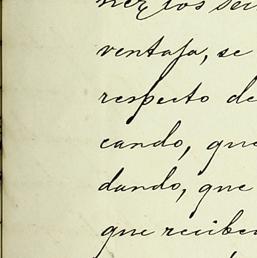 nez los sei
ventaja, se
respeito de
cando, que
dando, que
que reciben